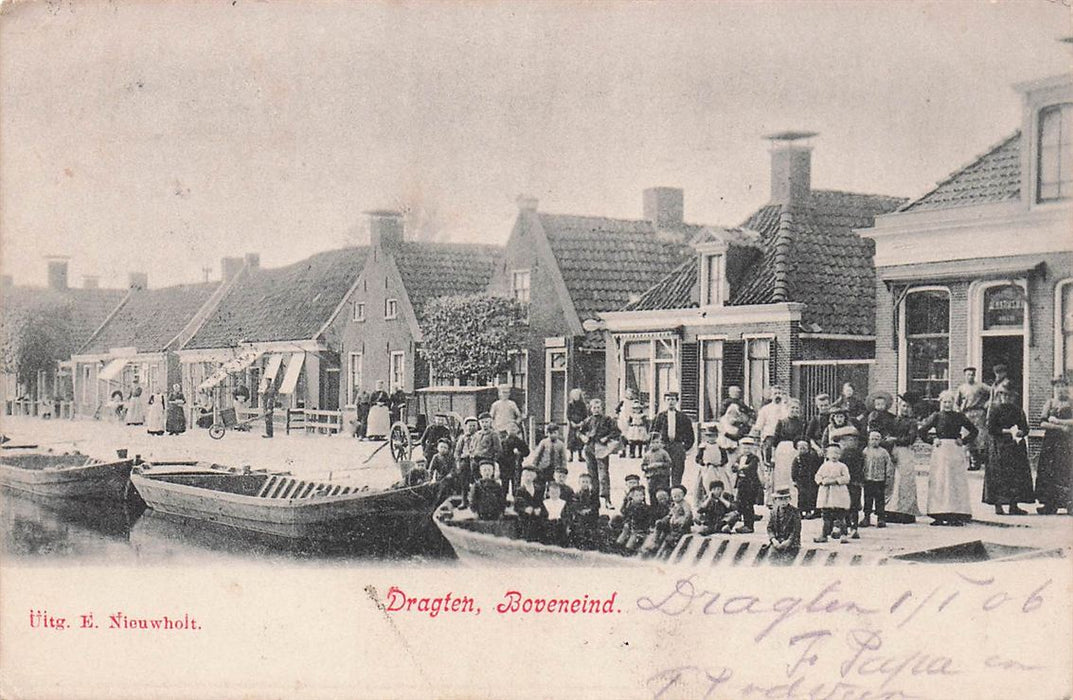 Dragten, Boveneind.
Uitg. E. Nieuwholt.
Dragten 1/1 06
F Papa en